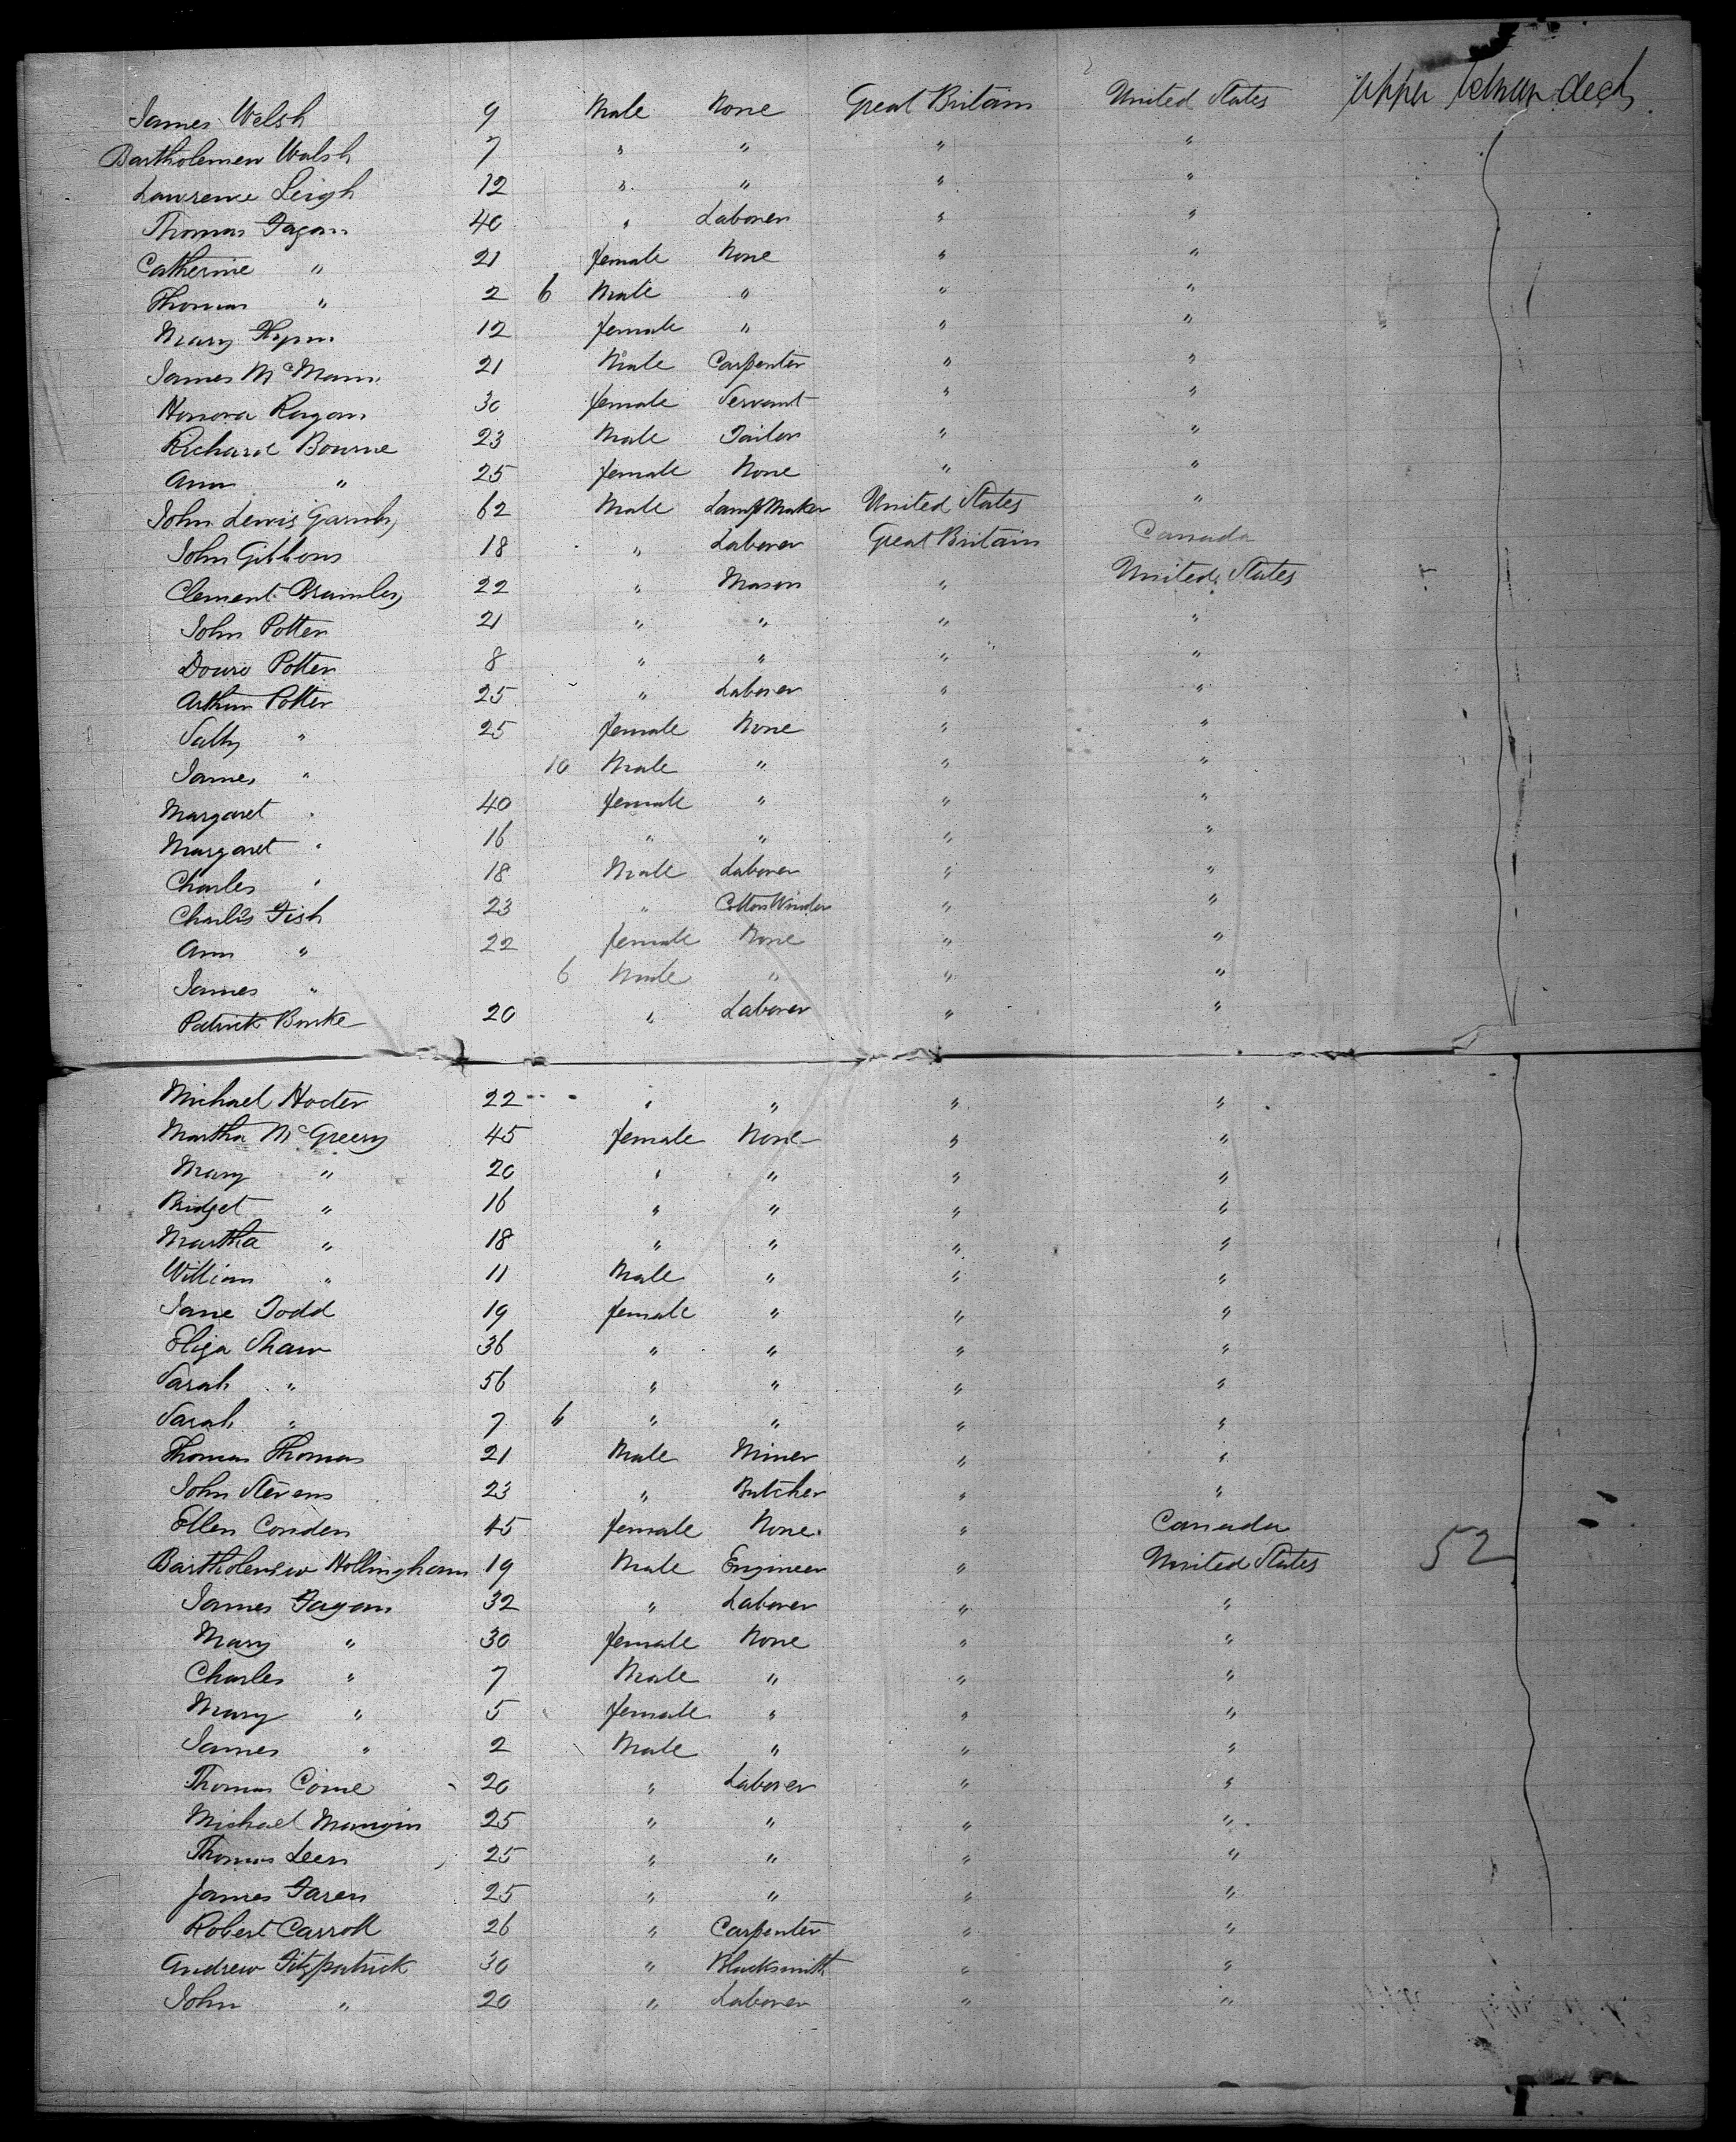 James Welsh 9 Male None Great Britain United States Upper between deck
Bartholemew Walsh 7 " " " "
Lawrence Leigh 12 " " " "
Thomas Fagan 40 " Laborer " "
Catherine " 21 female None " "
Thomas " 2 6 Male " " "
Mary 12 female " " "
James McMann 21 Male Carpenter " "
Honora Ragan 30 female Servant " "
Richard Bourne 23 Male Tailor " "
Ann " 25 female None " "
John Lewis 62 Male Lamp Maker United States "
John Gibbons 18 " Laborer Great Britain Canada
Clement Bramley 22 " Mason " United States
John Potter 21 " " " "
Douro Potter 8 " " " "
Arthur Potter 25 " Laborer " "
Sally " 25 female None " "
James " 10 Male " " "
Margaret " 40 female " " "
Margaret " 16 " " " "
Charles " 18 Male Laborer " "
Charles Fish 23 " Cotton Winder " "
Ann " 22 female None " "
James " 6 Male " " "
Patrick Burke 20 " Laborer " "
Michael Hocter 22 " " " "
Martha McGreery 45 female None " "
Mary " 20 " " " "
Bridget " 16 " " " "
Martha " 18 " " " "
William " 11 Male " " "
Jane Todd 19 female " " "
Eliza Shaw 36 " " " "
Sarah " 56 " " " "
Sarah " 7 6 " " " "
Thomas Thomas 21 Male Miner " "
John Stevens 23 " Butcher " "
Ellen Conden 45 female None " Canada
Bartholemew Hollingham 19 Male Engineer " United States 52
James Fagan 32 " Laborer " "
Mary " 30 female None " "
Charles " 7 Male " " "
Mary " 5 female " " "
James " 2 Male " " "
Thomas Corne 20 " Laborer " "
Michael Mangin 25 " " " "
Thomas Leen 25 " " " "
James Faren 25 " " " "
Robert Carroll 26 " Carpenter " "
Andrew Fitzpatrick 30 " Blacksmith " "
John " 20 " Laborer " "